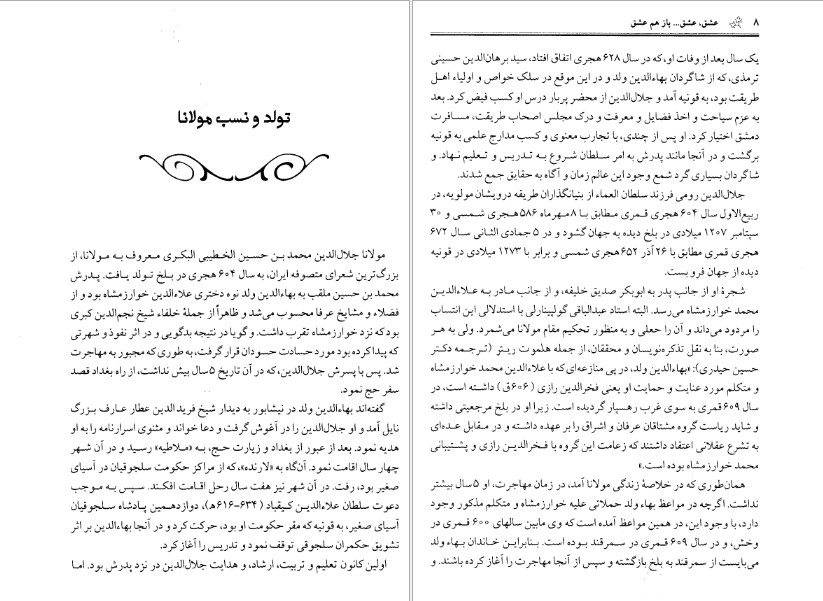 تولد و نسب مولانا
مولانا جلال‌الدین محمد بن حسین الخطیبی البکری معروف به مولانا، از
بزرگ‌ترین شعرای متصوفه ایران، به سال ۶۰۴ هجری در بلخ تولد یافت. پدرش
محمد بن حسین ملقب به بهاءالدین ولد نوه دختری علاءالدین خوارزمشاه بود و از
فضلاء و مشایخ عرفا محسوب می‌شد و ظاهراً از جملهٔ خلفاء شیخ نجم‌الدین کبری
بود که نزد خوارزمشاه تقرب داشت. و گویا در نتیجه بدگویی و در اثر نفوذ و شهرتی
که پیدا کرده بود مورد حسادت حسودان قرار گرفت، به طوری که مجبور به مهاجرت
شد. پس با پسرش جلال‌الدین، که در آن تاریخ ۵ سال بیش نداشت، از راه بغداد قصد
سفر حج نمود.
گفته‌اند بهاءالدین ولد در نیشابور به دیدار شیخ فرید الدین عطار عارف بزرگ
نایل آمد و او جلال‌الدین را در آغوش گرفت و دعا خواند و مثنوی اسرارنامه را به او
هدیه نمود. بعد از عبور از بغداد و زیارت حج، به «ملاطیه» رسید و در آن شهر
چهار سال اقامت نمود. آن‌گاه به «لارنده»، که از مراکز حکومت سلجوقیان در آسیای
صغیر بود، رفت. در آن شهر نیز هفت سال رحل اقامت افکند. سپس به موجب
دعوت سلطان علاءالدین کیقباد (۶۳۴-۶۱۶ه‍)، دوازدهمین پادشاه سلجوقیان
آسیای صغیر، به قونیه که مقر حکومت او بود، حرکت کرد و در آنجا بهاءالدین بر اثر
تشویق حکمران سلجوقی توقف نمود و تدریس را آغاز کرد.
اولین کانون تعلیم و تربیت، ارشاد، و هدایت جلال‌الدین در نزد پدرش بود. اما
۸ عشق، عشق... باز هم عشق
یک سال بعد از وفات او، که در سال ۶۲۸ هجری اتفاق افتاد، سید برهان‌الدین حسینی
ترمذی، که از شاگردان بهاءالدین ولد و در این موقع در سلک خواص و اولیاء اهل
طریقت بود، به قونیه آمد و جلال‌الدین از محضر پربار درس او کسب فیض کرد. بعد
به عزم سیاحت و اخذ فضایل و معرفت و درک مجلس اصحاب طریقت، مسافرت
دمشق اختیار کرد. او پس از چندی، با تجارب معنوی و کسب مدارج علمی به قونیه
برگشت و در آنجا مانند پدرش به امر سلطان شروع به تدریس و تعلیم نهاد. و
شاگردان بسیاری گرد شمع وجود این عالم زمان و آگاه به حقایق جمع شدند.
جلال‌الدین رومی فرزند سلطان العماء از بنیانگذاران طریقه درویشان مولویه، در
ربیع‌الاول سال ۶۰۴ هجری قمری مطابق با ۸ مهرماه ۵۸۶ هجری شمسی و ۳۰
سپتامبر ۱۲۰۷ میلادی در بلخ دیده به جهان گشود و در ۵ جمادی الثانی سال ۶۷۲
هجری قمری مطابق با ۲۶ آذر ۶۵۲ هجری شمسی و برابر با ۱۲۷۳ میلادی در قونیه
دیده از جهان فرو بست.
شجرهٔ او از جانب پدر به ابوبکر صدیق خلیفه، و از جانب مادر به علاءالدین
محمد خوارزمشاه می‌رسد. البته استاد عبدالباقی گولپینارلی با استدلالی این انتساب
را مردود می‌داند و آن را جعلی و به منظور تحکیم مقام مولانا می‌شمرد. ولی به هر
صورت، بنا به نقل تذکره‌نویسان و محققان، از جمله هلموت ریتر (ترجمه دکتر
حسین حیدری): «بهاءالدین ولد، در پی منازعه‌ای که با علاءالدین محمد خوارزمشاه
و متکلم مورد عنایت و حمایت او یعنی فخرالدین رازی (۶۰۶ق) داشته است، در
سال ۶۰۹ قمری به سوی غرب رهسپار گردیده است. زیرا او در بلخ مرجعیتی داشته
و شاید ریاست گروه مشتاقان عرفان و اشراق را بر عهده داشته و در مقابل عده‌ای
به تشرع عقلانی اعتقاد داشتند که زعامت این گروه با فخرالدین رازی و پشتیبانی
محمد خوارزمشاه بوده است.»
همان‌طوری که در خلاصهٔ زندگی مولانا آمد، در زمان مهاجرت، او ۵ سال بیشتر
نداشت. اگرچه در مواعظ بهاء ولد حملاتی علیه خوارزمشاه و متکلم مذکور وجود
دارد، با وجود این، در همین مواعظ آمده است که وی مابین سالهای ۶۰۰ قمری در
وخش، و در سال ۶۰۹ قمری در سمرقند بوده است. بنابراین خاندان بهاء ولد
می‌بایست از سمرقند به بلخ بازگشته و سپس از آنجا مهاجرت را آغاز کرده باشند. و